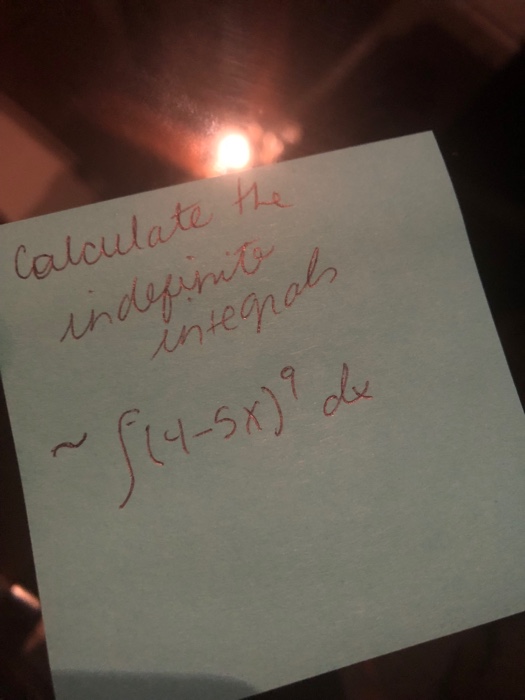 Calculate the
indefinite
integrals
~ ∫(4-5x)⁹ dx